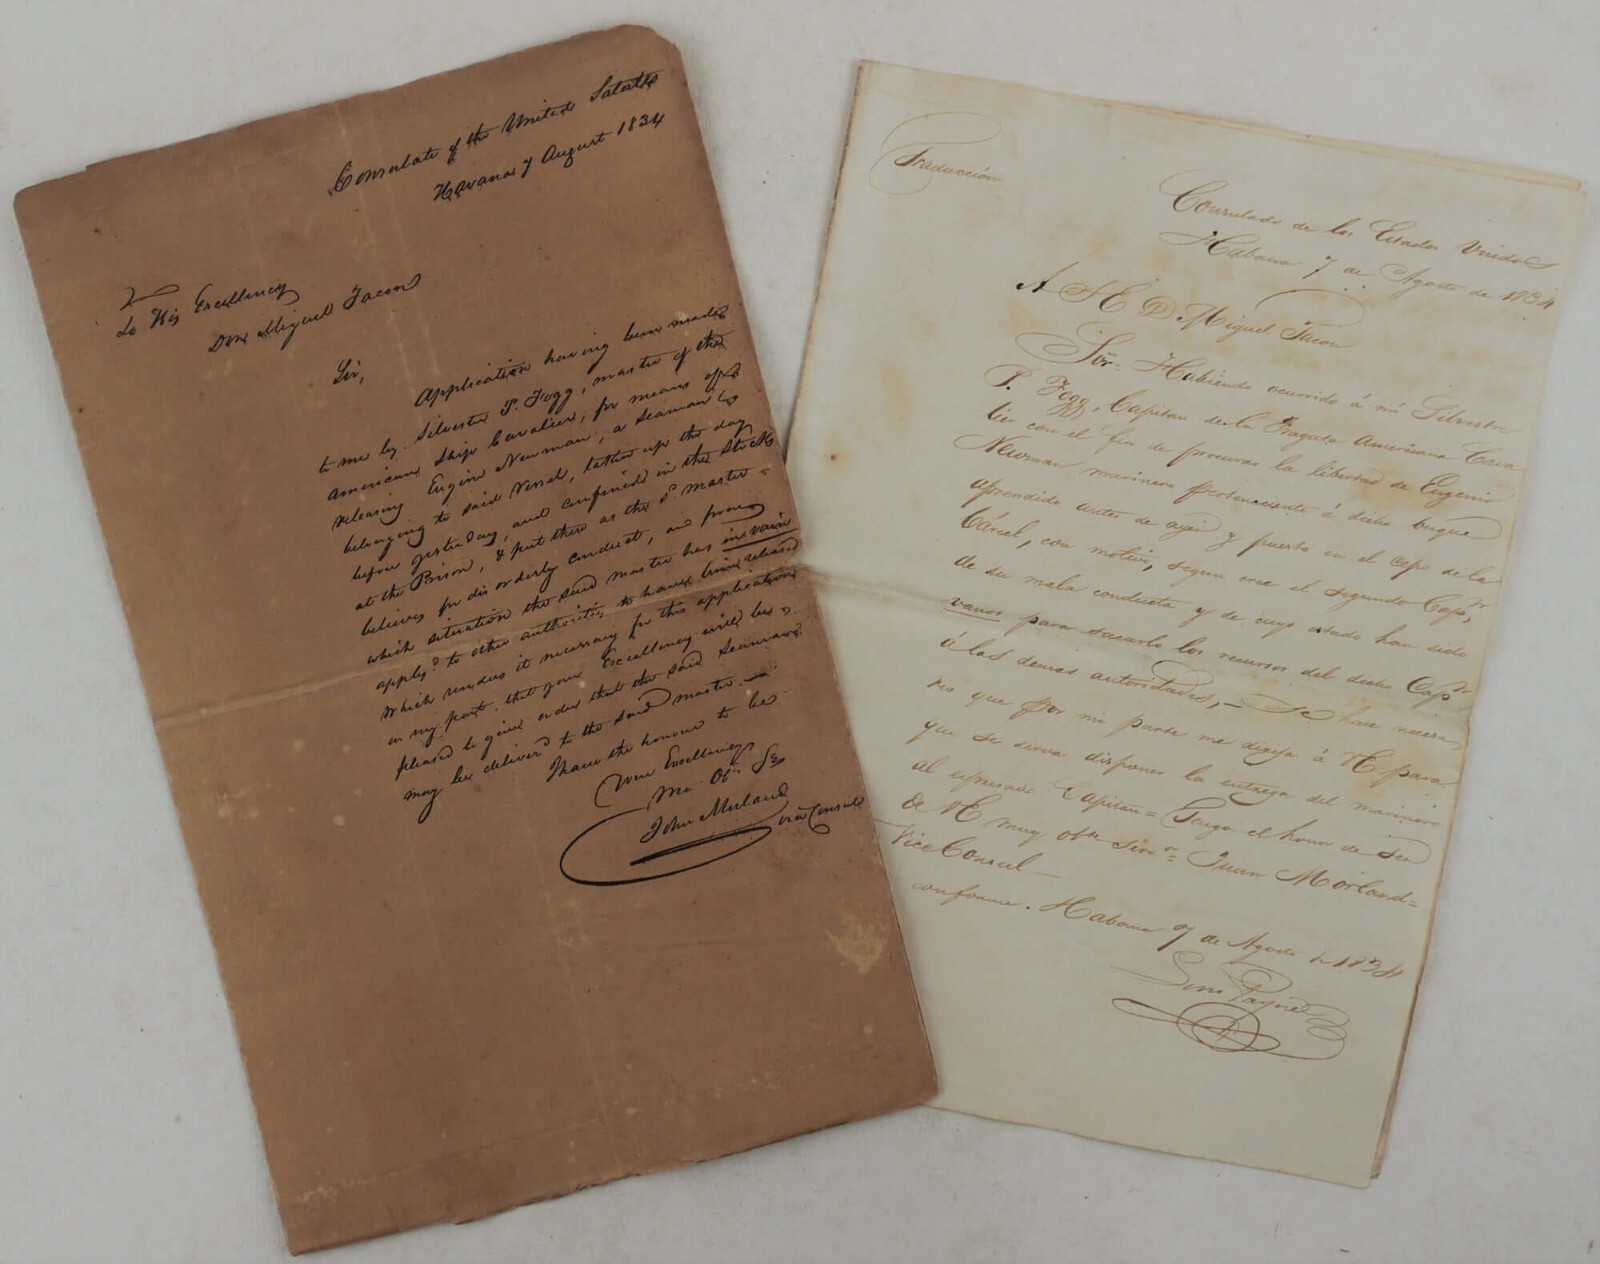 Consulate of the United States
Havana 7 August 1834
To His Excellency
Don Miguel Tacon
Sir,
Application having been made
to me by Silvester P. Fogg, master of the
American Ship Cavalier, for means of
releasing Eugine Newman, a Seaman
belonging to said Vessel, taken up the day
before yesterday, and confined in the Stocks
at the Prison, & put there as the Sd. master
believes for disorderly conduct, and from
which situation the said master has in vain
apply.d to other authorities to have him released
which renders it necessary for this application
on my part, that your Excellency will be
pleased to give order that the said Seaman
may be deliver.d to the said master.
I have the honour to be
Your Excellency
Mo. Ob.t Se
John Morland
vice Consul
Traducción
Consulado de los Estados Unidos
Habana 7 de Agosto de 1834
A S E D Miguel Tacon
Sor. Habiendo ocurrido á mi Silvestre
P. Fogg, Capitan de la Fragata Americana Cava
lier con el fin de procurar la libertad de Eugenio
Newman marinero perteneciente á dicho buque
aprendido antes de ayer y puesto en el cepo de la
Cárcel, con motivo, segun cree el segundo Capn.
de su mala conducta y de cuyo estado han sido
vanos para sacarlo los recursos del dicho Capn.
á las demas autoridades, Se hace necesa
rio que por mi parte me dirija á VE para
que se sirva disponer la entrega del marinero
al espresado Capitan = Tengo el honor de ser
de VE muy obte. Serr. = Juan Morland =
Vice Consul
conforme. Habana 7 de Agosto de 1834
Luis Payne